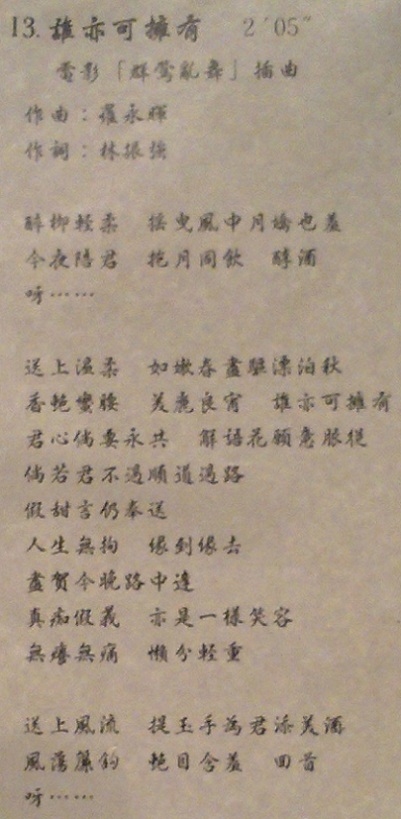 13. 誰亦可擁有 2'05"
電影「群鶯亂舞」插曲
作曲：羅永暉
作詞：林振強
醉柳輕柔 搖曳風中月嬌也羞
今夜陪君 抱月同飲 醇酒
呀……
送上溫柔 如嫩春盡驅漂泊秋
香艷蠻腰 美麗良宵 誰亦可擁有
君心倘要永共 解語花願意服從
倘若君不過順道過路
假甜言仍奉送
人生無拘 緣到緣去
盡賀今晚路中逢
真痴假義 亦是一樣笑容
無癢無痛 懶分輕重
送上風流 提玉手為君添美酒
風蕩簾鈎 艷目含羞 回首
呀……